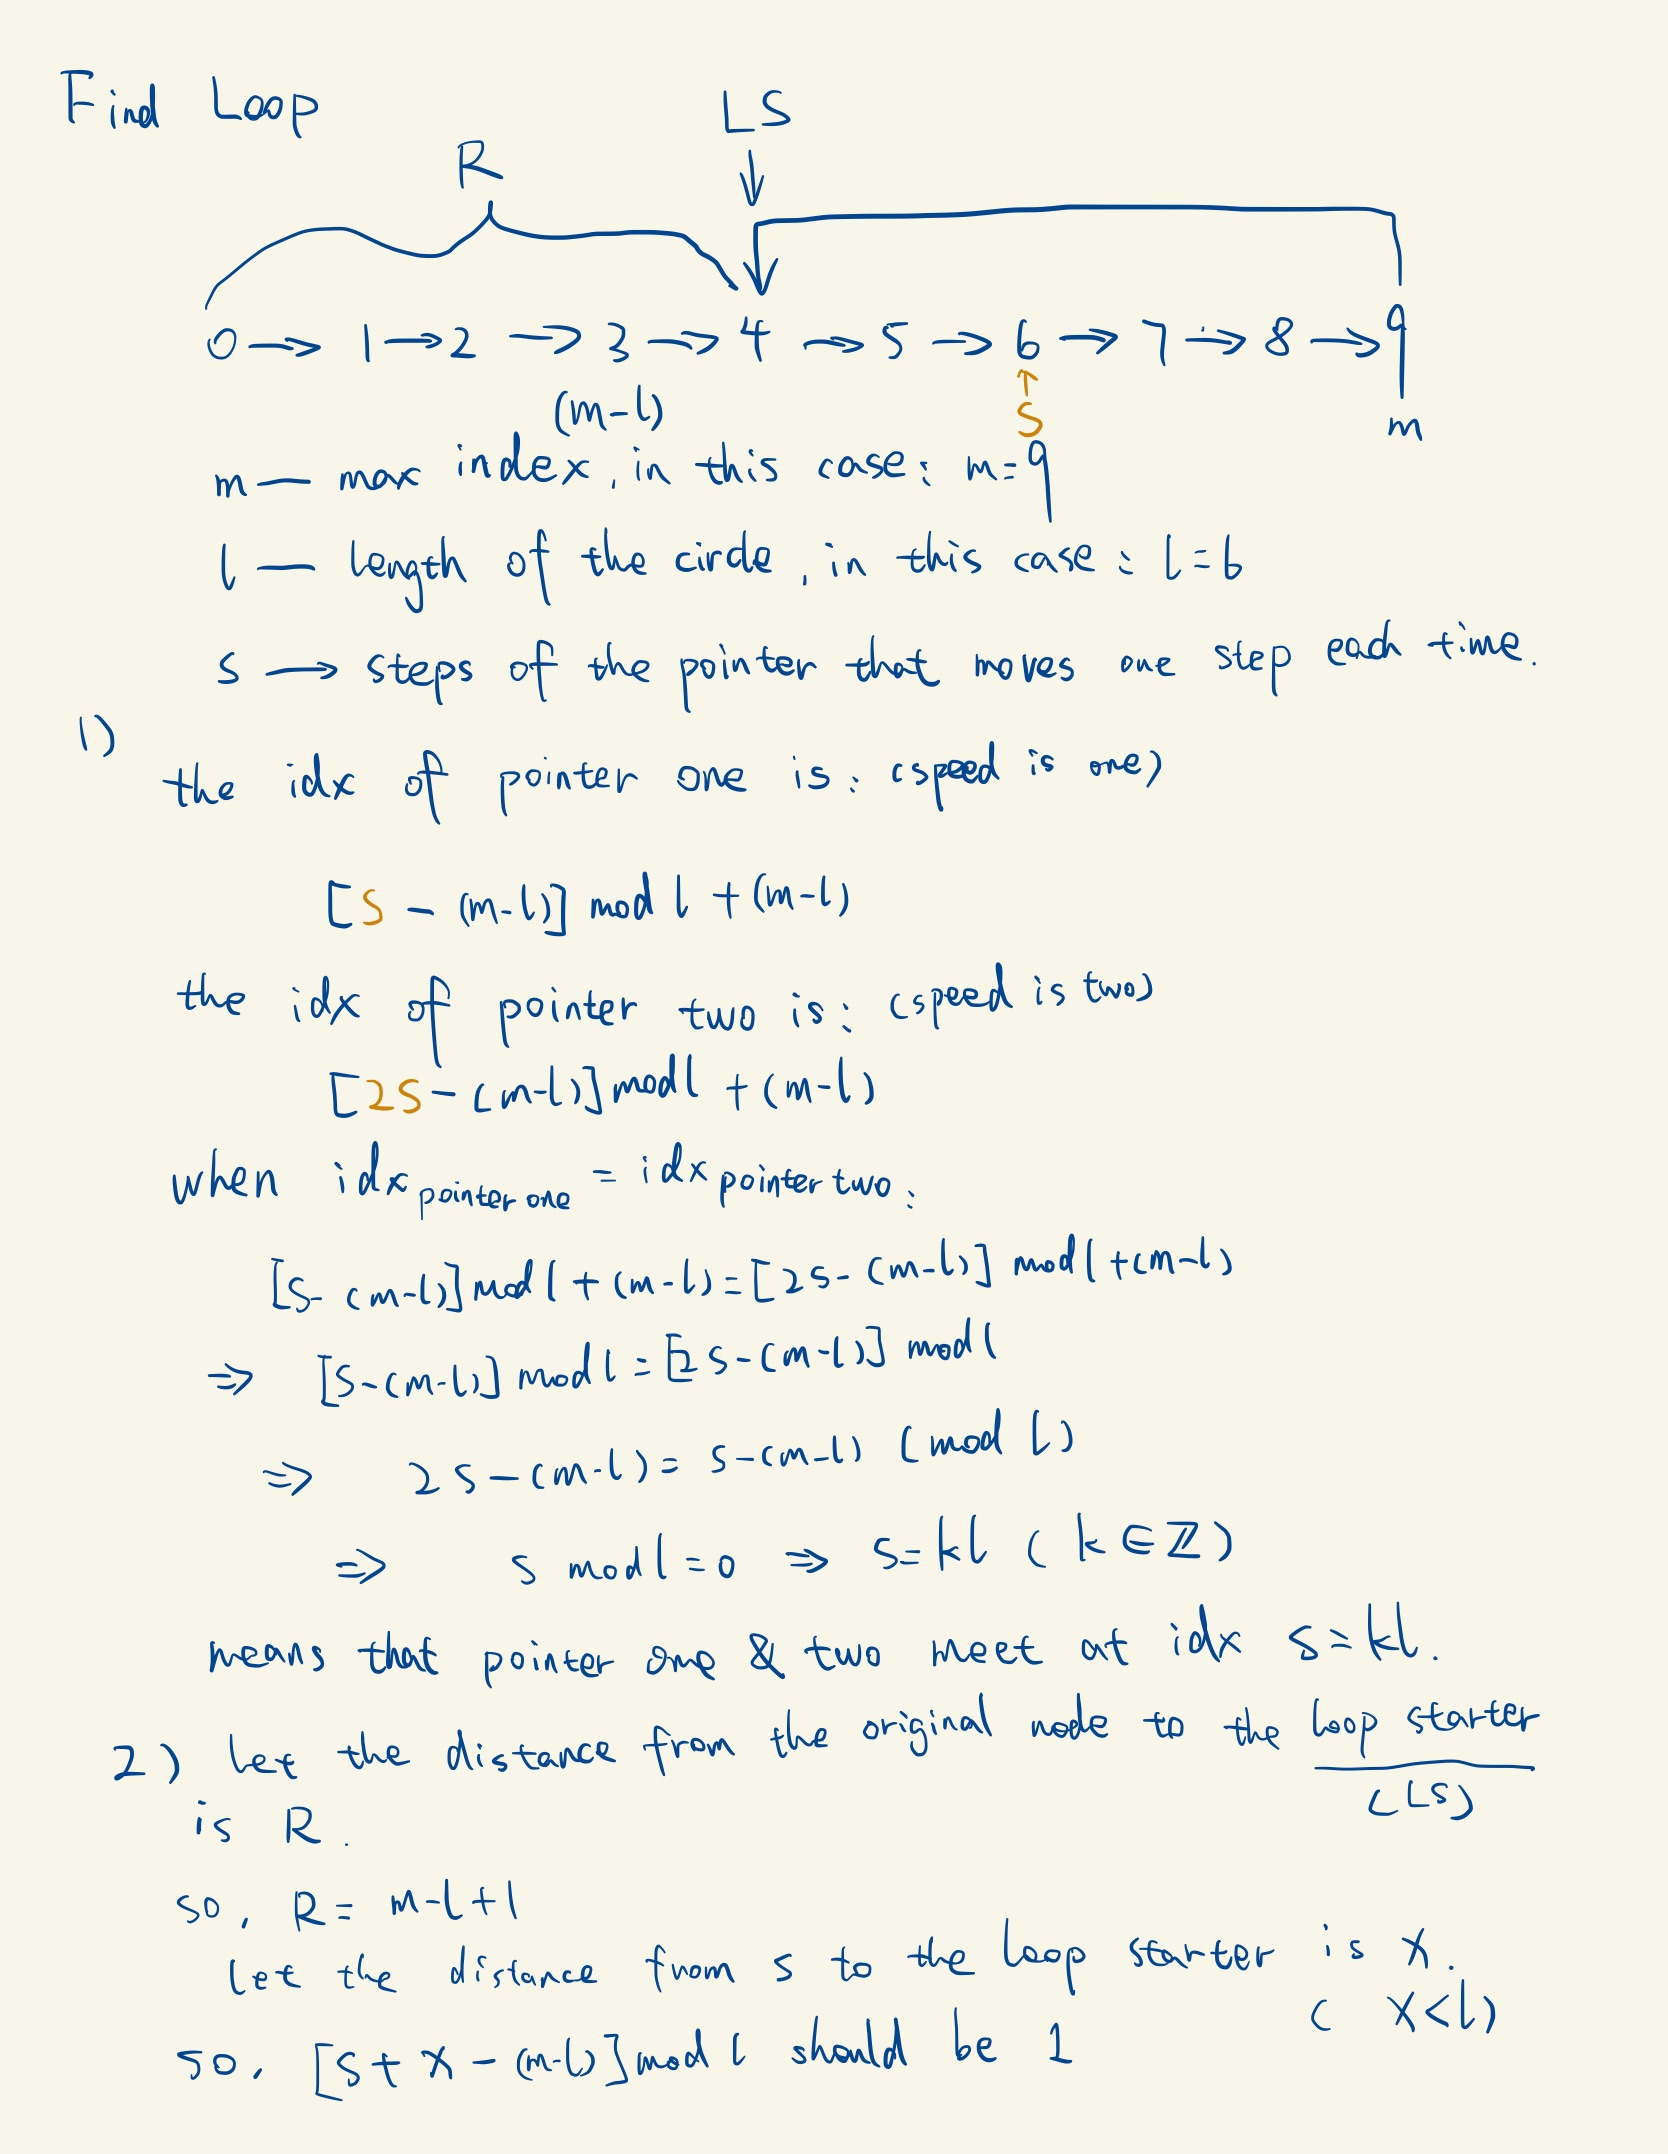 Find Loop
LS
R
0 → 1 → 2 → 3 → 4 → 5 → 6 → 7 → 8 → 9
(m-l)
↑
S
m
m — max index, in this case: m=9
l — length of the circle, in this case: l=6
s → steps of the pointer that moves one step each time.
1)
the idx of pointer one is: (speed is one)
[S - (m-l)] mod l + (m-l)
the idx of pointer two is: (speed is two)
[2S - (m-l)] mod l + (m-l)
when idx pointer one = idx pointer two:
[S - (m-l)] mod l + (m-l) = [2S - (m-l)] mod l + (m-l)
⇒ [S - (m-l)] mod l = [2S - (m-l)] mod l
⇒ 2S - (m-l) = S - (m-l) (mod l)
⇒ S mod l = 0 ⇒ S = kl (k ∈ ℤ)
means that pointer one & two meet at idx s = kl.
2) Let the distance from the original node to the loop starter
(LS)
is R.
so, R = m-l+1
Let the distance from s to the loop starter is X.
(X<l)
so, [S + X - (m-l)] mod l should be 1